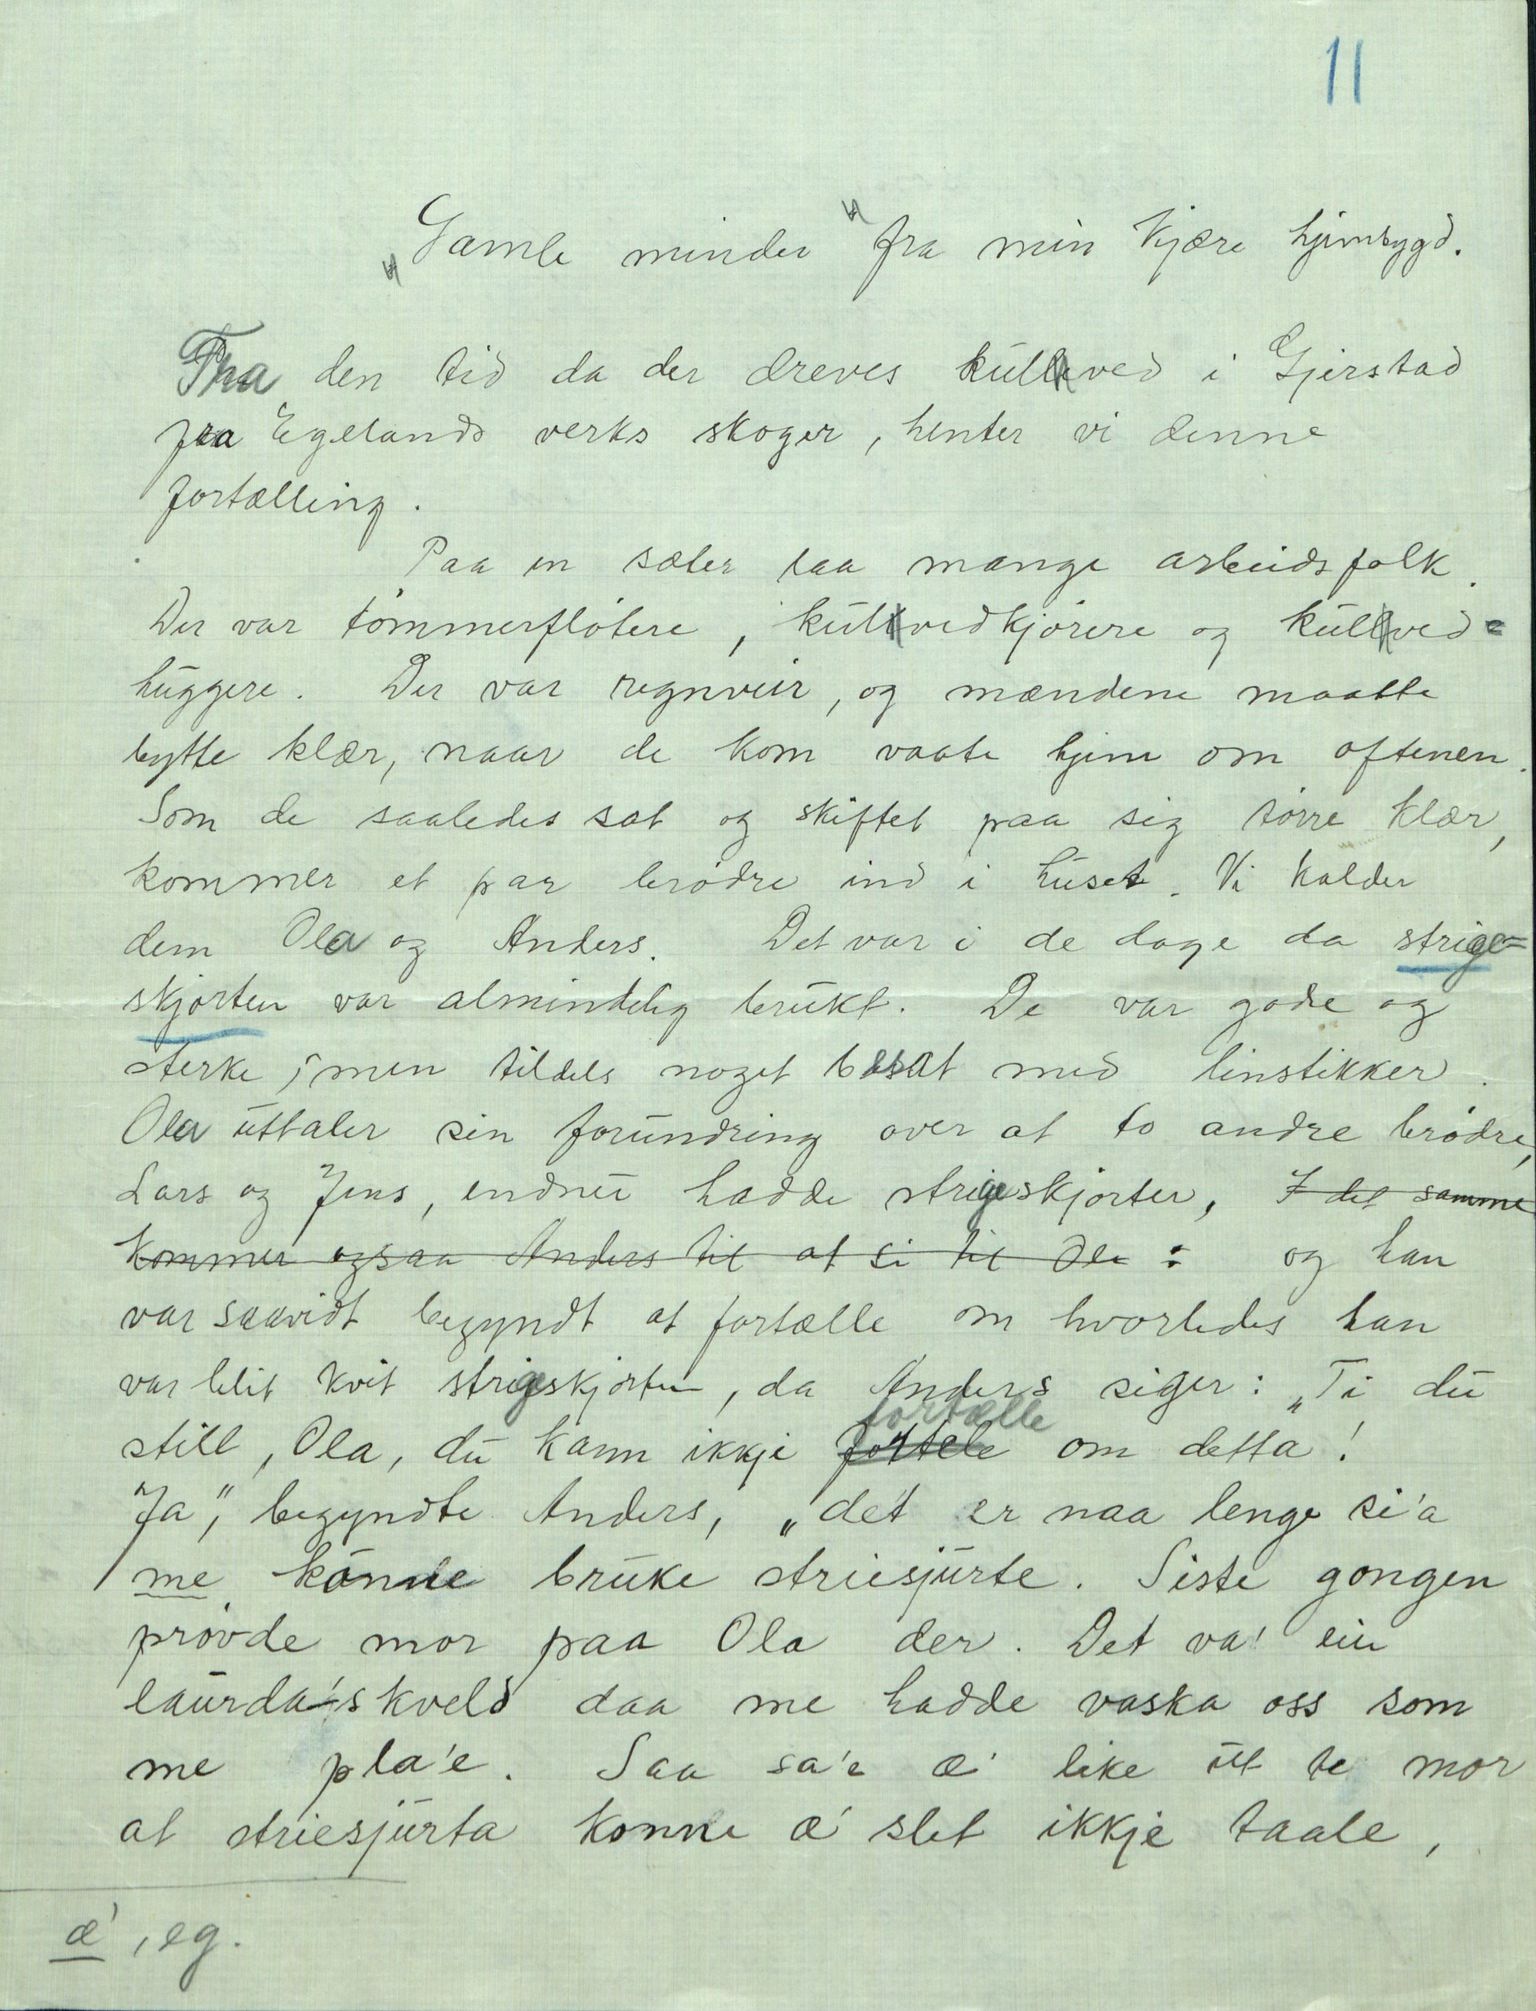 11
„Gamle minder“ fra min kjære hjembygd.
Fra den tid da der dreves kulved i Gjerstad
fra Egelands verks skoger, henter vi denne
fortælling.
Paa en sæter laa mange arbeidsfolk.
Der var tømmerfløtere, kulvedkjørere og kulved=
huggere. Der var regnveir, og mændene maatte
bytte klær, naar de kom vaate hjem om aftenen.
Som de saaledes sat og skiftet paa sig tørre klær,
kommer et par brødre ind i huset. Vi kalder
dem Ola og Anders. Det var i de dage da strige=
skjorten var almindelig brukt. De var gode og
sterke, men tildels noget besat med linstikker.
Ola uttaler sin forundring over at to andre brødre,
Lars og Jens, endnu hadde strigeskjorter, I det samme
kommer ogsaa Anders til at si til Ola: og han
var saavidt begyndt at fortælle om hvorledes han
var blit kvit strigeskjorten, da Anders siger: „Ti du
fortælle
still, Ola, du kann ikkje fortele om detta!
Ja“, begyndte Anders, „de't er naa lenge si'a
me konne bruke striesjurte. Siste gongen
prøvde mor paa Ola der. Det va' ein
laurda'skveld daa me hadde vaska oss som
me pla'e. Saa sa'e æ' like ut te mor
at striesjurta konne æ' slet ikkje taale,
æ', eg.